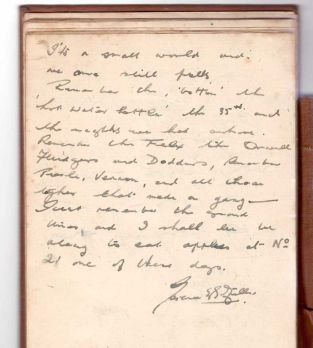 It's a small world and
we are still pals,
Remember the, 'bottom' the
hot water bottle' the 35ᵗʰ. and
the nights we had out
Remember the Felix like
and Dodders, Remember
Vernon, and all those
others that made a gang
Just remember the good
times and I shall be
along to eat apples at Nº
21 one of these days.